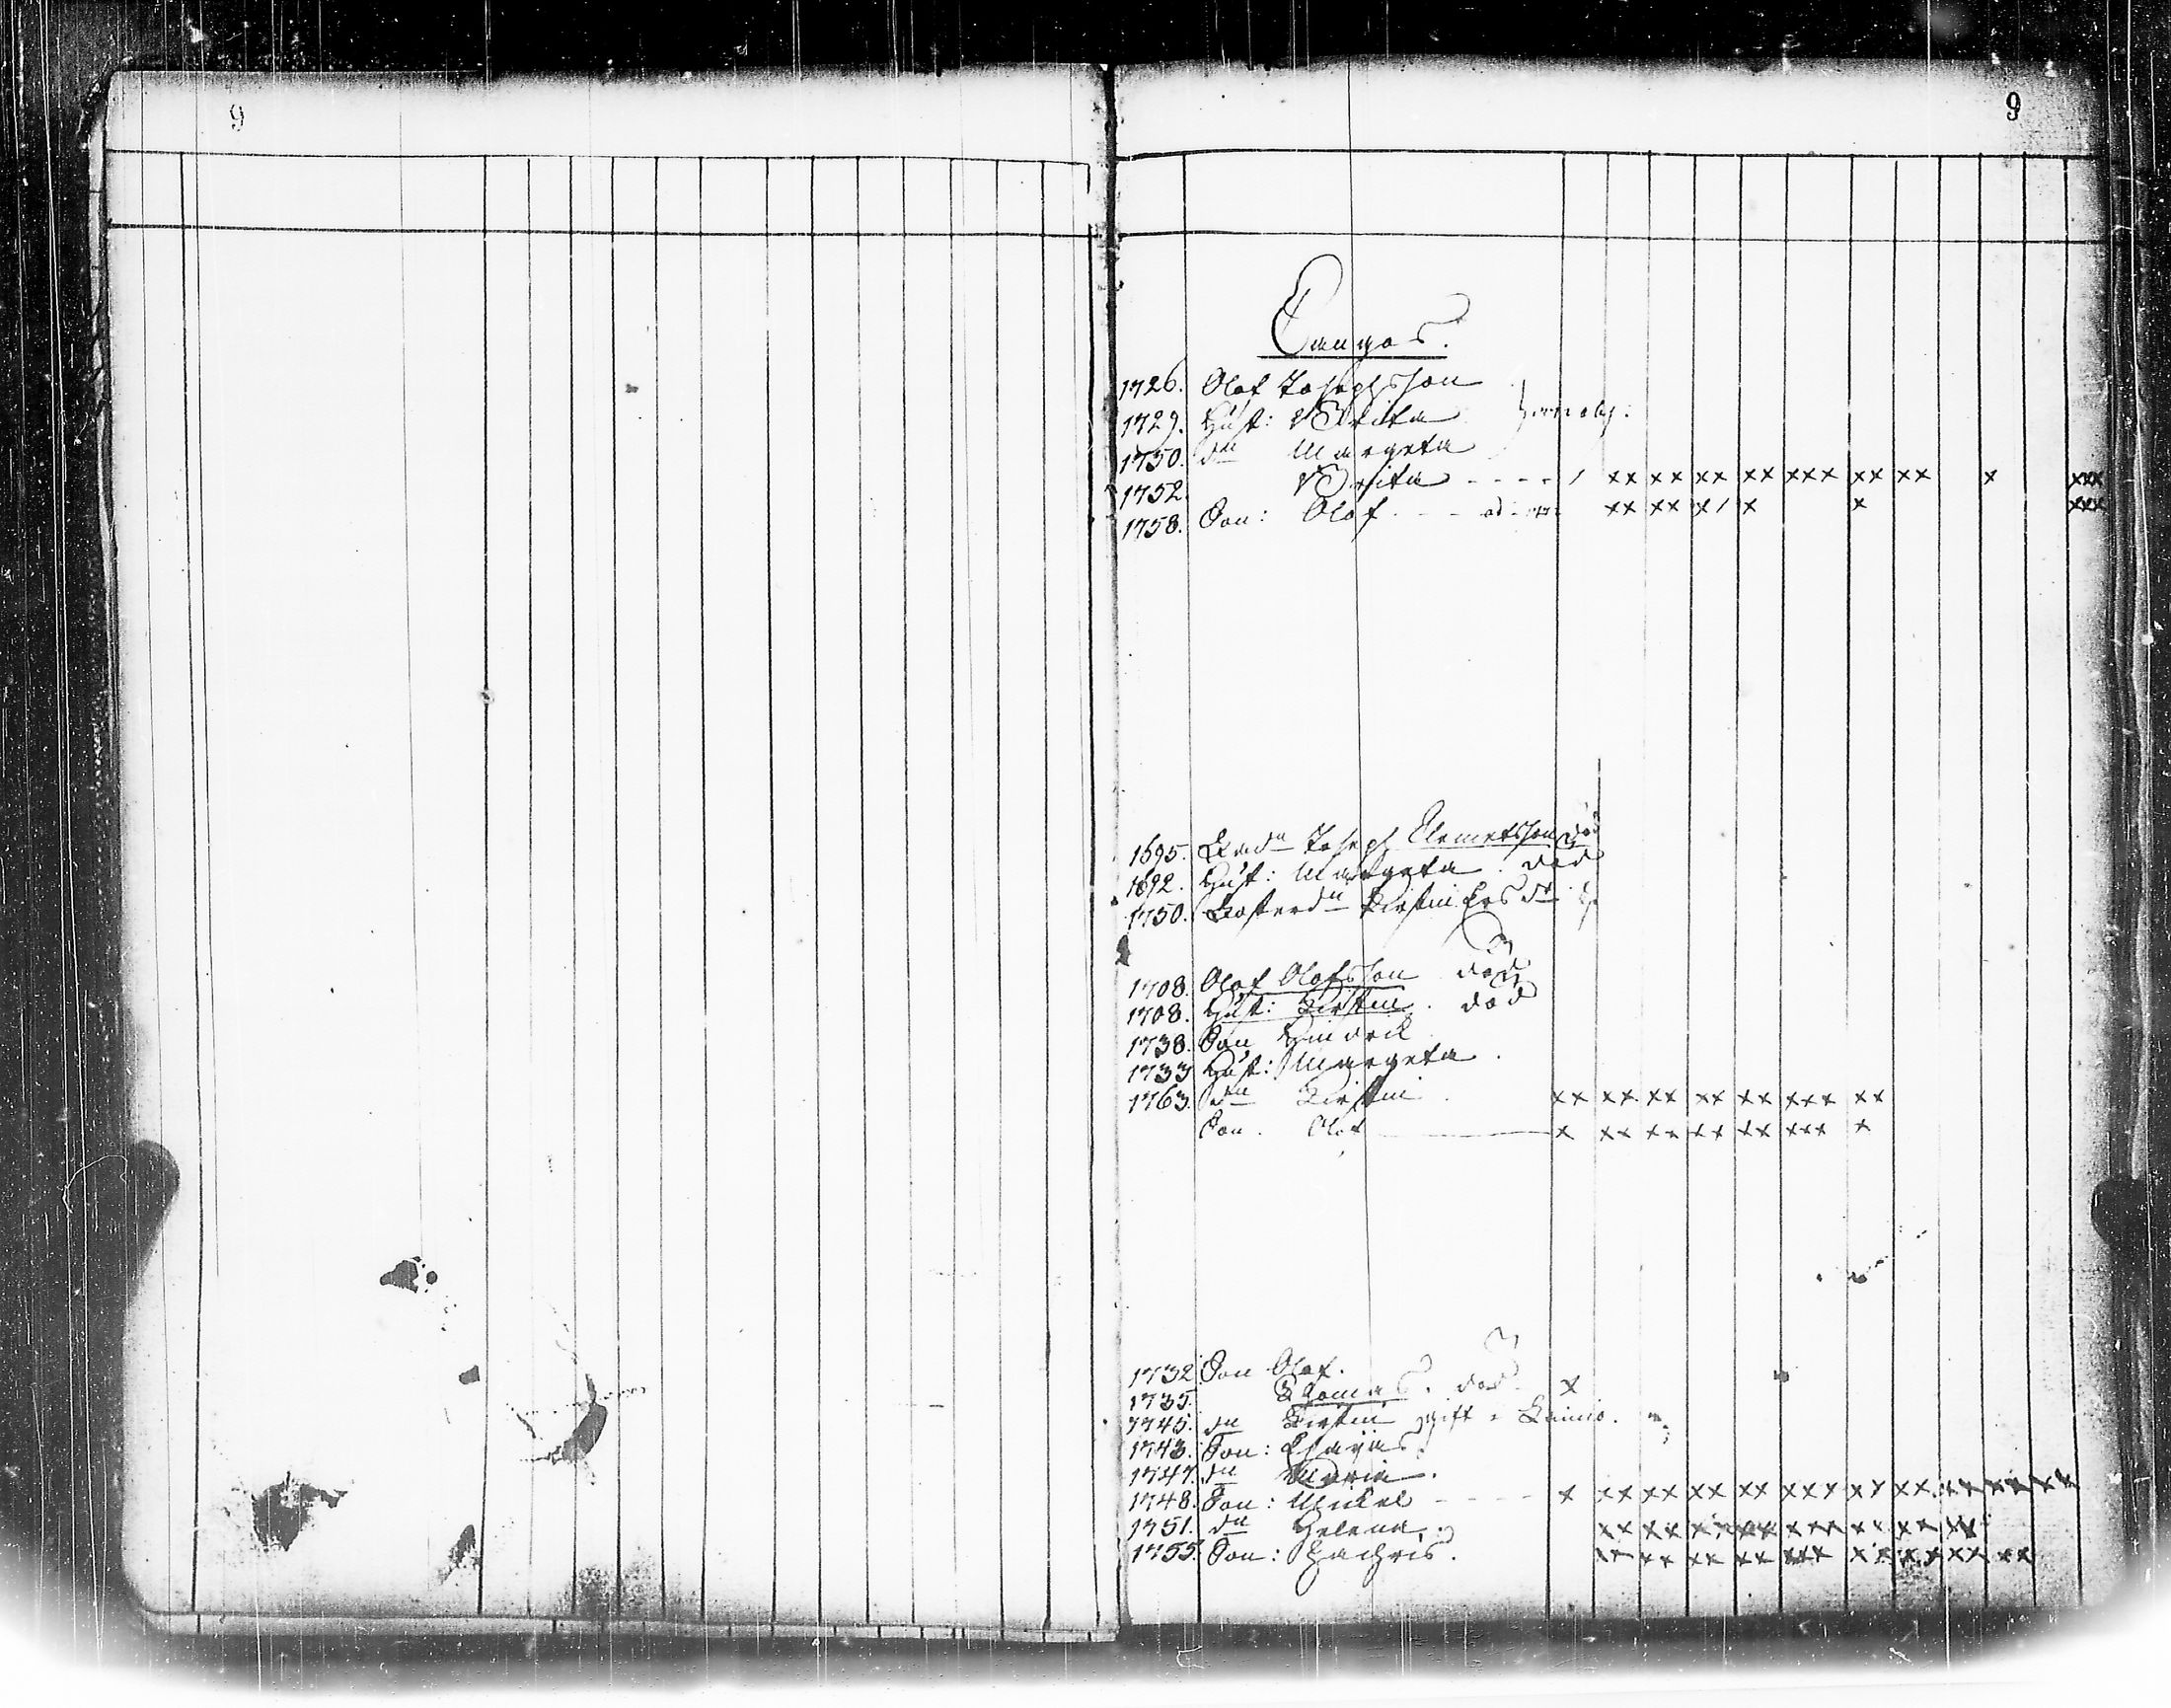 9
9
Tangos.
1726. Olof Josephsson
1729. Hust: Brita
1750. dn Margeta
1752. Brita - - - - / xx xx xx xx xxx xx xx x xxx
1758. Son: Olof - - xx xx x/ x x xxx
1695. Joseph Clemetsson död
1692. Hust: Margeta. död
1750. Kirstin Ersdr
1708. Olof Olofsson död
1708. Hust: Kirstin. död
1738. Son Hindrik
1733 Hust: Margeta.
1763. dn Kirstin. xx xx xx xx xx xxx xx
Son. Olof x xx xx xx xx xxx x
1732 Son Olof.
1735. Thomas. död. x
1745. dn Kirstin gift i
1743. Son: Esaias
1747. dn Maria.
1748. Son: Mickel - - - - x xx xx xx xx xxx xx xx xx xx xx
1751. dn Helena. xx xx xx xx xxx xx xx xx
1755. Son: Zachris. xx xx xx xx xxx xx xx xx xx